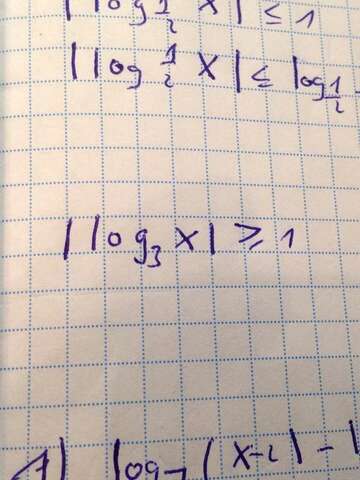 |log 1/2 x| ≤ 1
|log 1/2 x| ≤ log 1/2
|log₃ x| ≥ 1
1) log (x-2) -